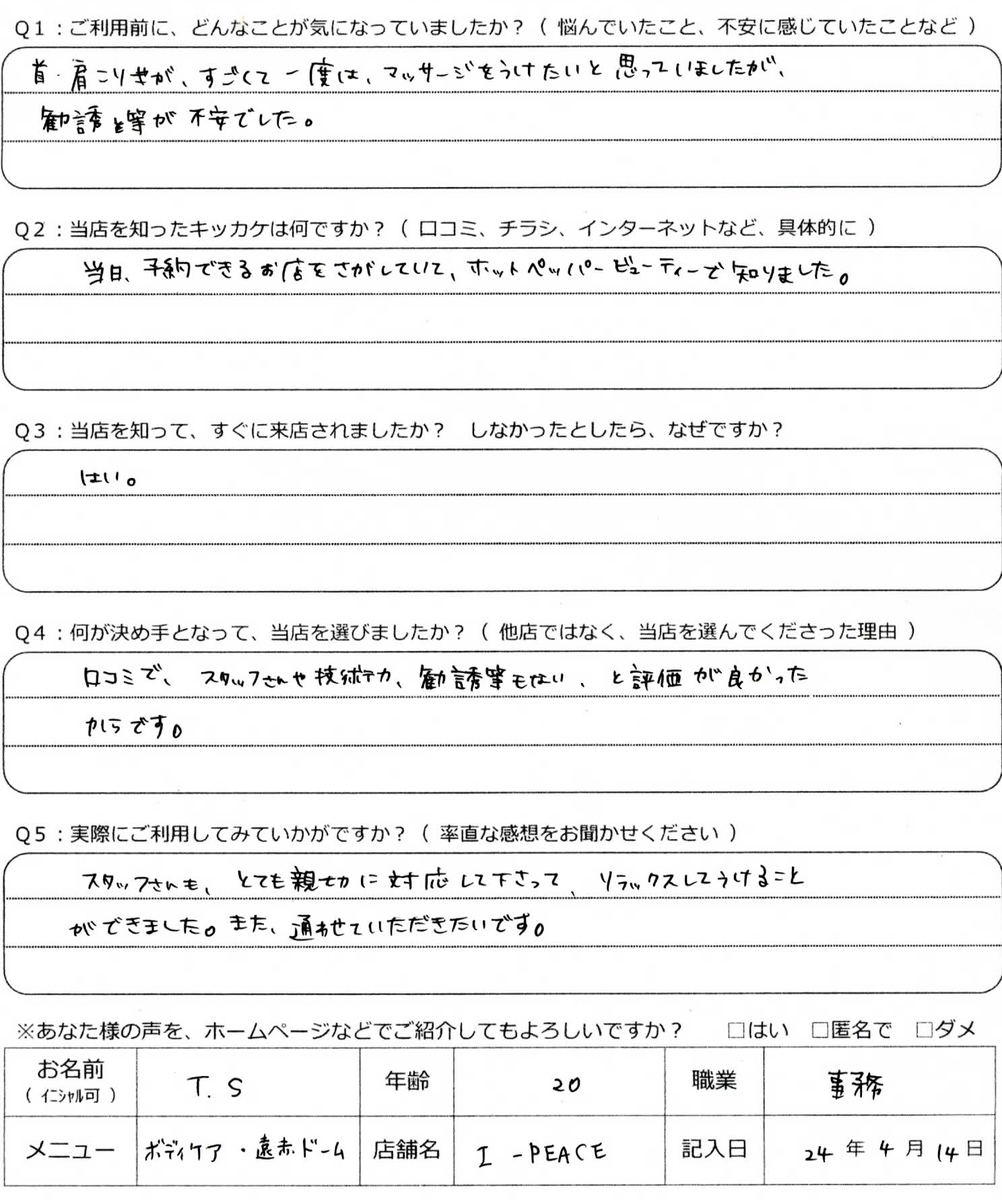 Q1：ご利用前に、どんなことが気になっていましたか？（ 悩んでいたこと、不安に感じていたことなど ）
首・肩こり等が、すごくて一度は、マッサージをうけたいと思っていましたが、
勧誘等が不安でした。
Q2：当店を知ったキッカケは何ですか？（ 口コミ、チラシ、インターネットなど、具体的に ）
当日、予約できるお店をさがしていて、ホットペッパービューティーで知りました。
Q3：当店を知って、すぐに来店されましたか？　しなかったとしたら、なぜですか？
はい。
Q4：何が決め手となって、当店を選びましたか？（ 他店ではなく、当店を選んでくださった理由 ）
口コミで、スタッフさんや技術力、勧誘等もない、と評価が良かった
からです。
Q5：実際にご利用してみていかがですか？（ 率直な感想をお聞かせください ）
スタッフさんも、とても親切に対応して下さって、リラックスしてうけること
ができました。また、通わせていただきたいです。
※あなた様の声を、ホームページなどでご紹介してもよろしいですか？　□はい　□匿名で　□ダメ
お名前（ ｲﾆｼｬﾙ可 ）　T.S　年齢　20　職業　事務
メニュー　ボディケア・遠赤ドーム　店舗名　I-PEACE　記入日　24年4月14日